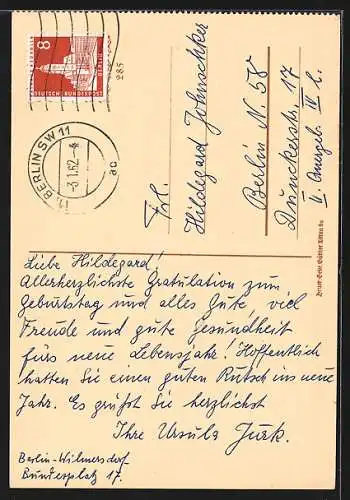 8
DEUTSCHE BUNDESPOST
BERLIN
285
BERLIN SW 11
-3.1.62.-4
ac
Frl.
Hildegard
Berlin N. 58
Dunckerstr. 17
II. Aufg. IV l.
Liebe Hildegard!
Allerherzlichste Gratulation zum
Geburtstag und alles Gute, viel
Freude und gute Gesundheit
fürs neue Lebensjahr! Hoffentlich
hatten Sie einen guten Rutsch ins neue
Jahr. Es grüßt Sie herzlichst
Ihre Ursula Jurk.
Berlin-Wilmersdorf
Bundesplatz 17.